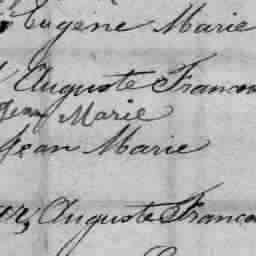 Eugène Marie
Auguste Franco
Jean Marie
Jean Marie
Auguste Franco